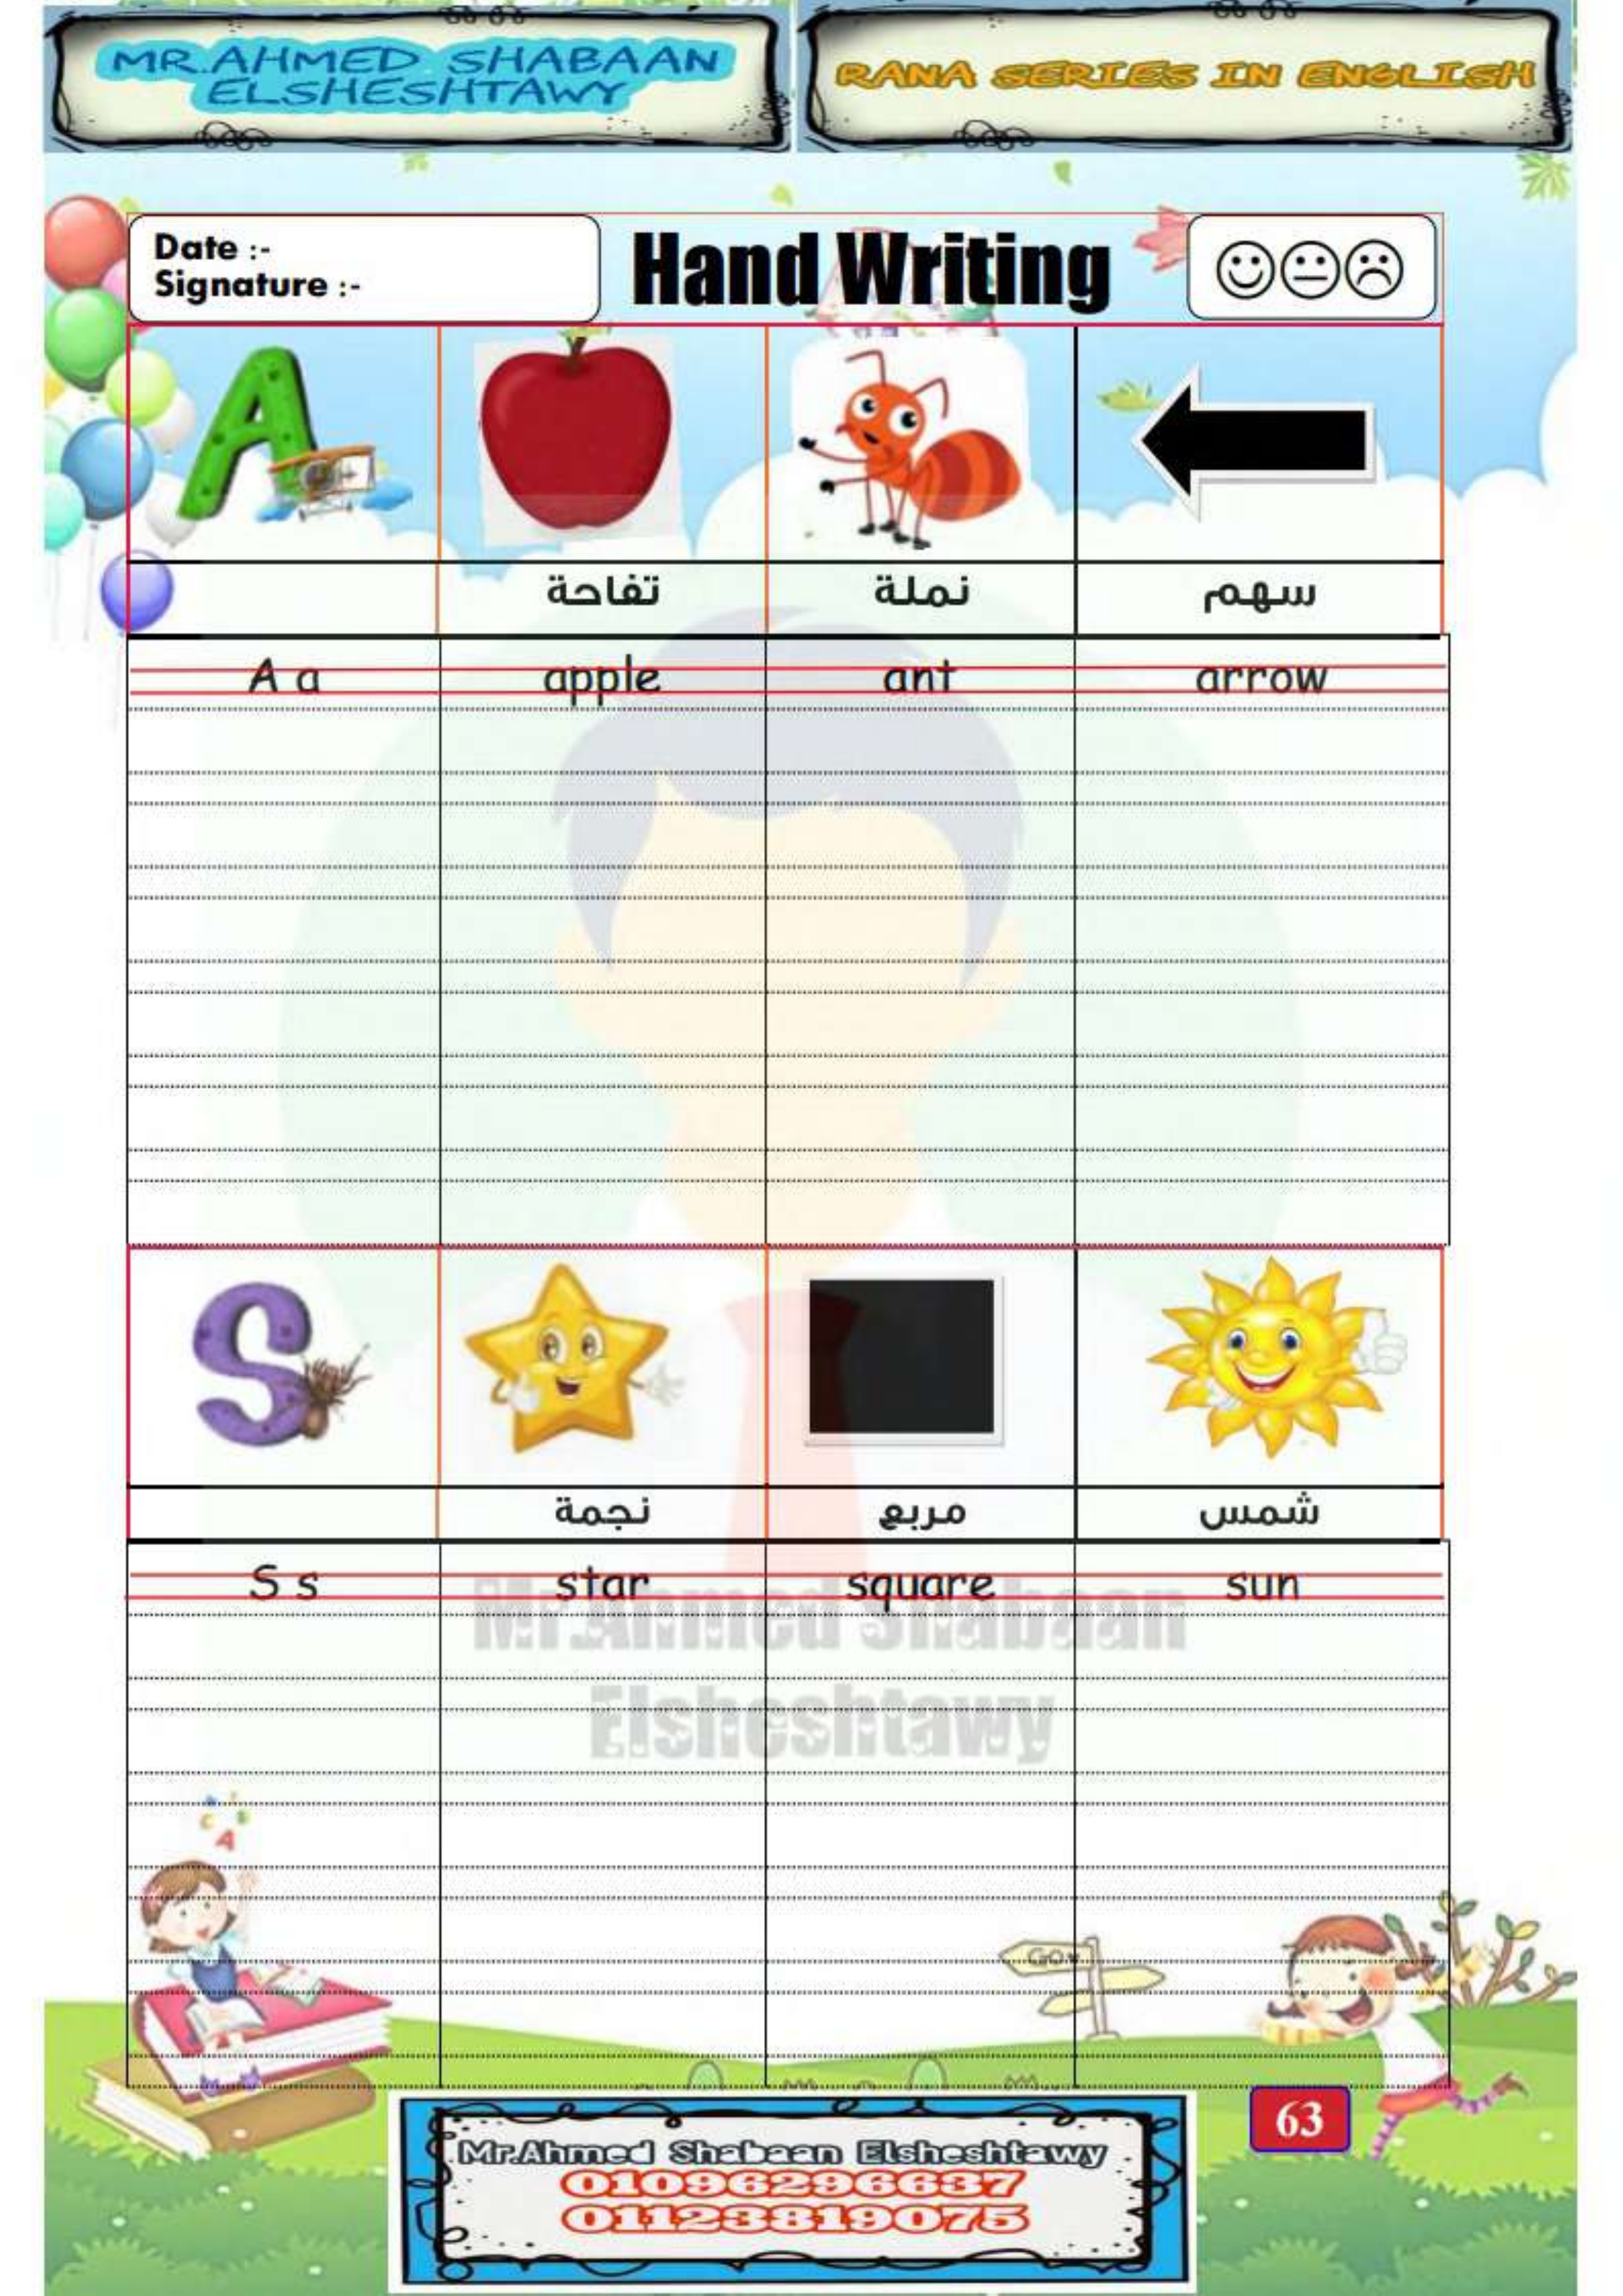 MR.AHMED SHABAAN
ELSHESHTAWY
RANA SERIES IN ENGLISH
Date :-
Signature :-
Hand Writing
A
تفاحة نملة سهم
A a apple ant arrow
S
نجمة مربع شمس
S s star square sun
Mr.Ahmed Shabaan
Elsheshtawy
A
GO
63
Mr.Ahmed Shabaan Elsheshtawy
01096296637
01123819075